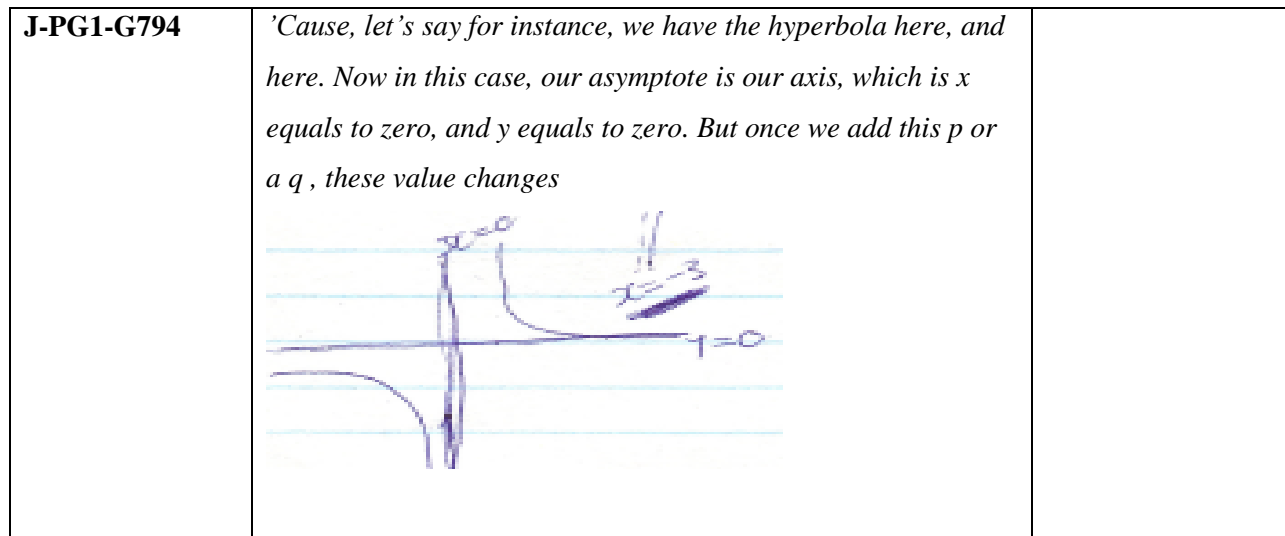 J-PG1-G794
’Cause, let’s say for instance, we have the hyperbola here, and
here. Now in this case, our asymptote is our axis, which is x
equals to zero, and y equals to zero. But once we add this p or
a q , these value changes
x=0
x=-3
y=0